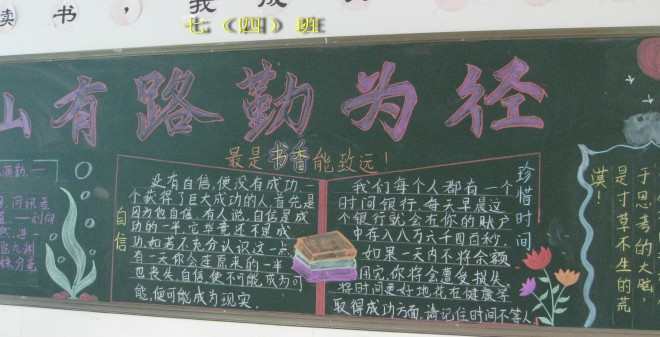 读 书 ， 我
七（四）班
山有路勤为径
最是书香能致远！
自信
没有自信，便没有成功，一
个获得了巨大成功的人，首先是
因为他自信。有人说，自信是成
功的一半，它毕竟还不是成
功，如若不充分认识这一点，
有一天你会连原来的一半
也丧失。自信使不可能成为可
能，使可能成为现实。
珍惜时间
我们每个人都有一个
时间银行，每天早晨这
个银行就会在你的账户
中存入八万六千四百秒，
如果一天内不将余额
用完，你将会遭受损失。
将时间更好地花在健康等
取得成功方面，请记住时间不等人
于思考的大脑，
是寸草不生的荒
漠！